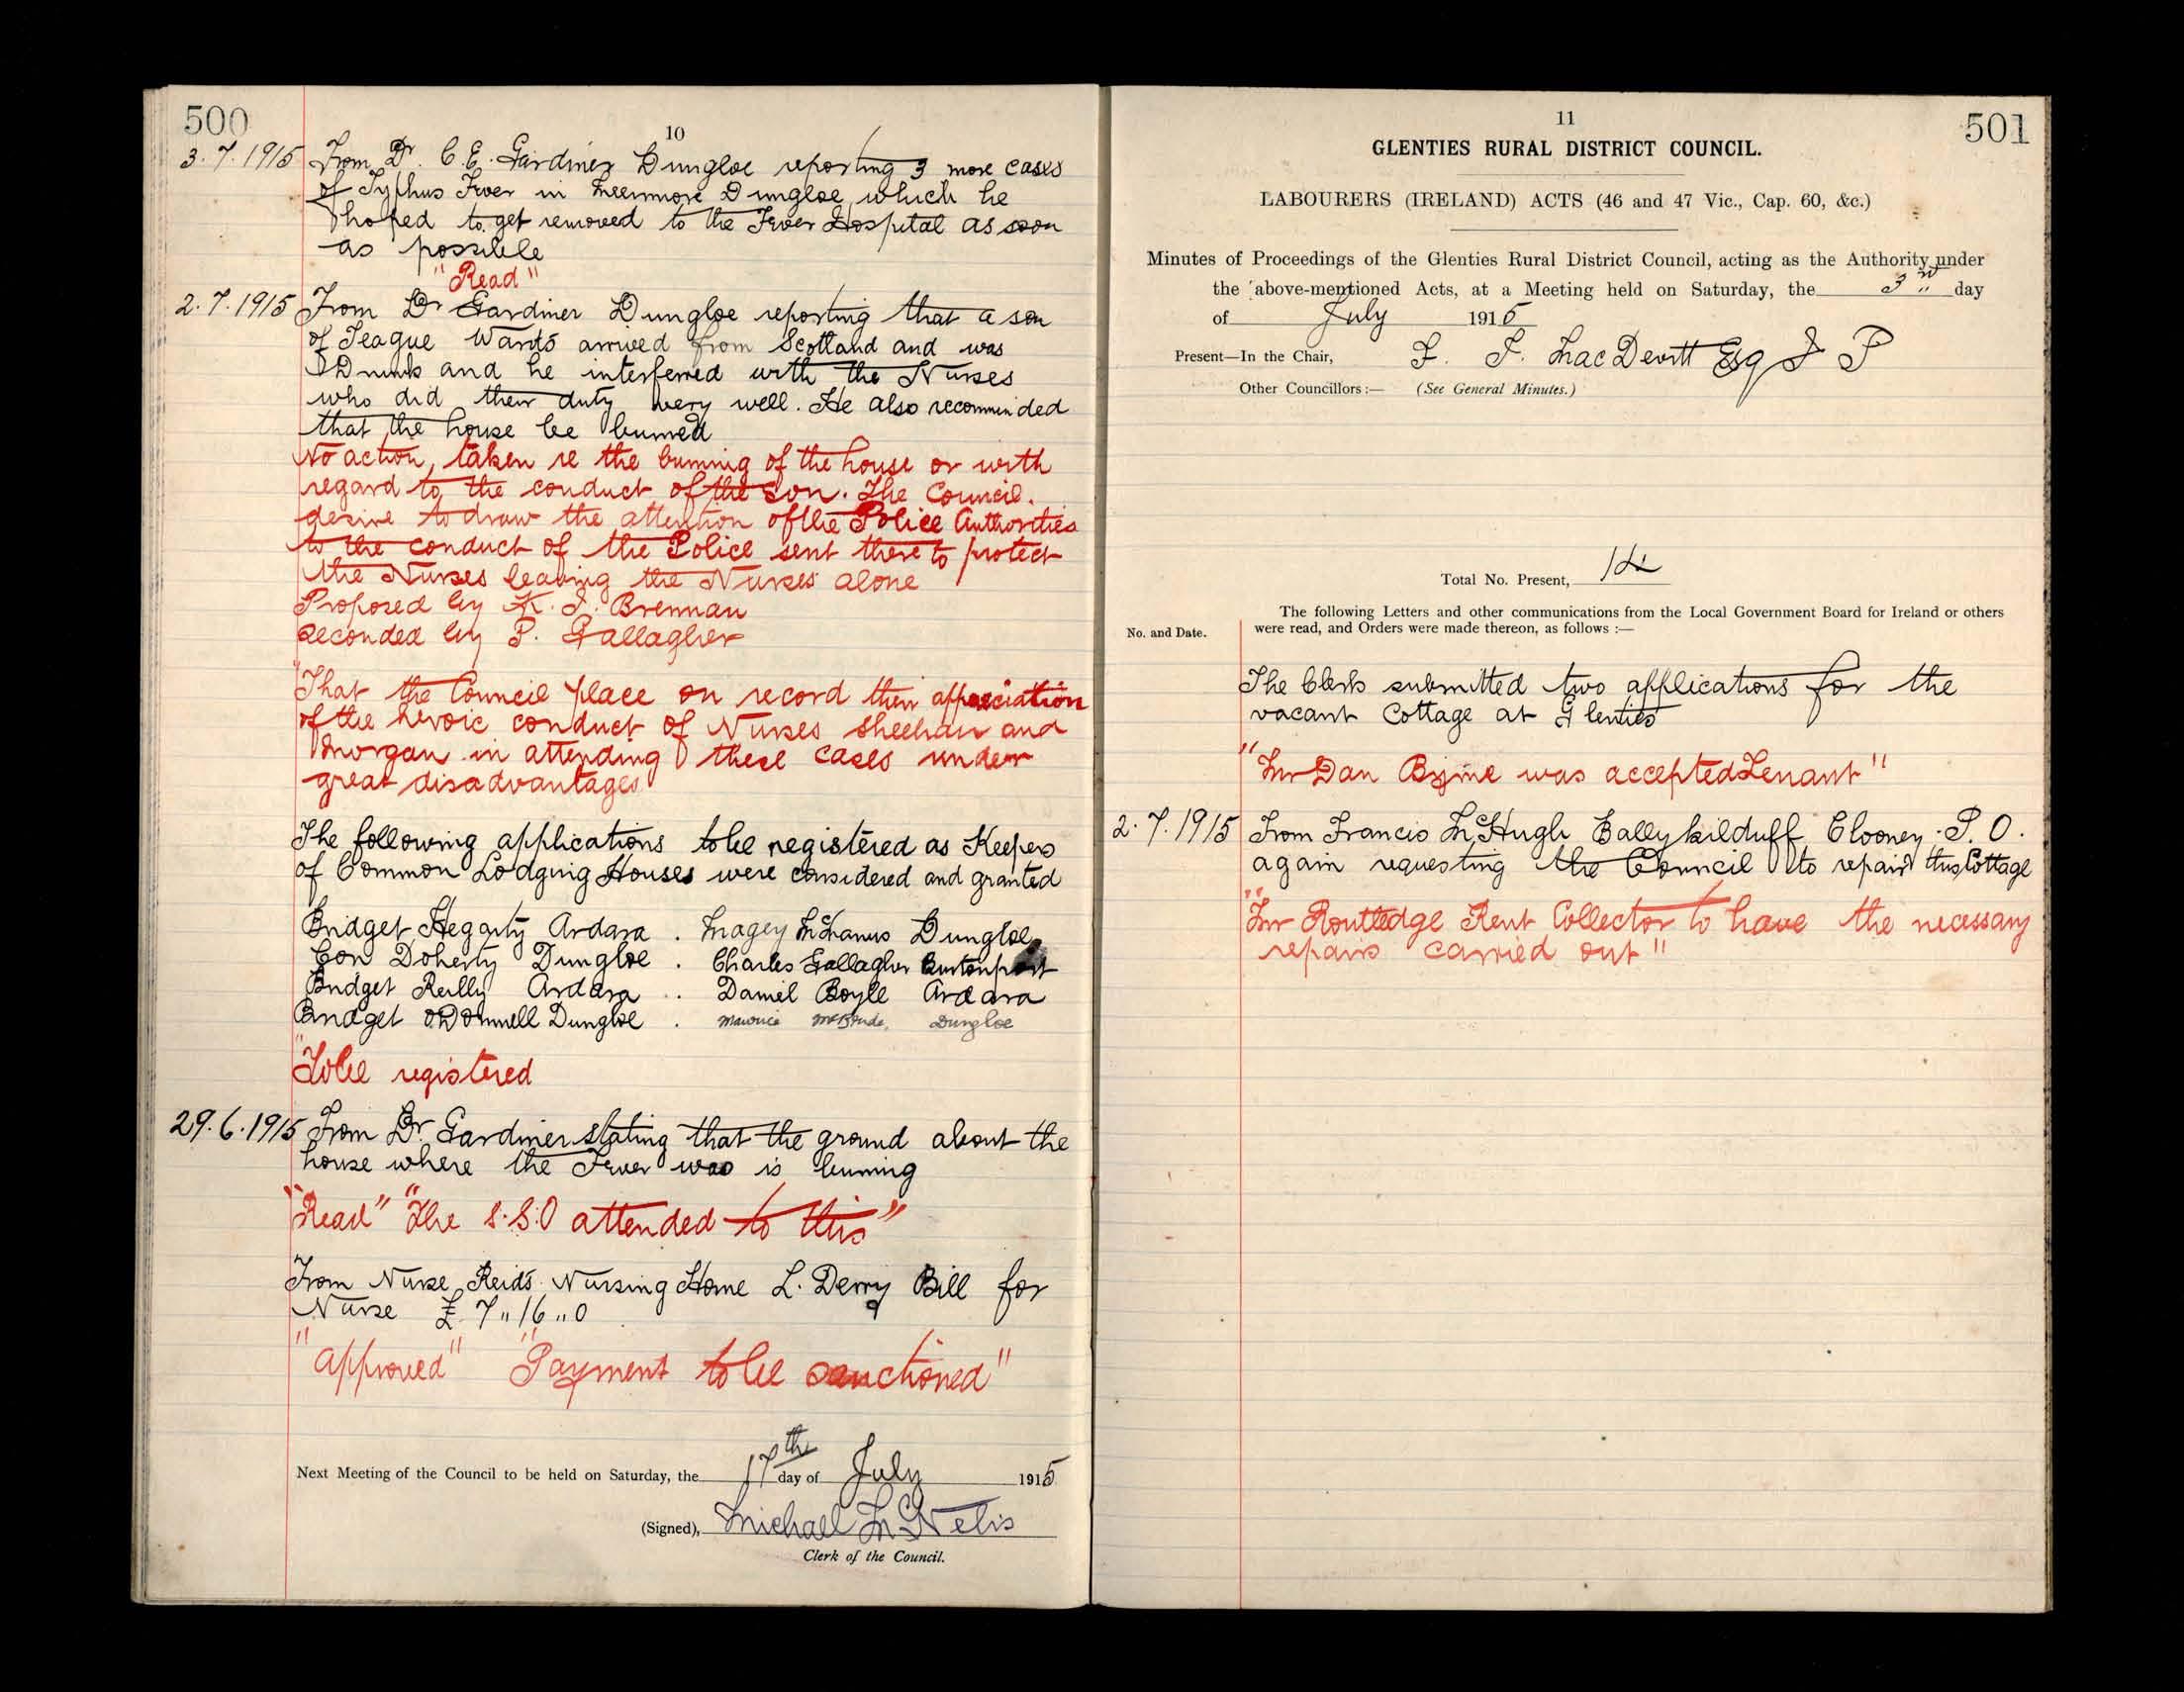 500
10
3.7.1915 From Dr. C.E. Gardiner Dungloe reporting 3 more cases
of Typhus Fever in Meenmore Dungloe which he
hoped to get removed to the Fever Hospital as soon
as possible
"Read"
2.7.1915 From Dr Gardiner Dungloe reporting that a son
of Teague Wards arrived from Scotland and was
Drunk and he interferred with the Nurses
who did their duty very well. He also recommended
that the house be burned
No action taken re the burning of the house or with
regard to the conduct of the son. The Council.
desire to draw the attention of the Police Authorities
to the conduct of the Police sent there to protect
the Nurses leaving the Nurses alone
Proposed by K. J. Brennan
Seconded by P. Gallagher
"That the Council place on record their appreciation
of the heroic conduct of Nurses Sheehan and
Morgan in attending these cases under
great disadvantages
The following applications to be registered as Keepers
of Common Lodging Houses were considered and granted
Bridget Hegarty Ardara . Magey McManus Dungloe
Con Doherty Dungloe . Charles Gallagher Burtonport
Bridget Reilly Ardara . Daniel Boyle Ardara
Bridget O'Donnell Dungloe . Maurice McBride, Dungloe
"To be registered
29.6.1915 From Dr. Gardiner stating that the ground about the
house where the Fever was is burning
"Read" "The S.S.O attended to this"
From Nurse Reid's Nursing Home L. Derry Bill for
Nurse £ 7"16"0
"approved" "Payment to be sanctioned"
Next Meeting of the Council to be held on Saturday, the 17th day of July 1915
(Signed), Michael McNelis
Clerk of the Council.
11
501
GLENTIES RURAL DISTRICT COUNCIL.
LABOURERS (IRELAND) ACTS (46 and 47 Vic., Cap. 60, &c.)
Minutes of Proceedings of the Glenties Rural District Council, acting as the Authority under
the above-mentioned Acts, at a Meeting held on Saturday, the 3rd day
of July 1915
Present—In the Chair, F. F. MacDevitt Esq J P
Other Councillors:— (See General Minutes.)
Total No. Present, 14
The following Letters and other communications from the Local Government Board for Ireland or others
No. and Date. were read, and Orders were made thereon, as follows:—
The Clerk submitted two applications for the
vacant Cottage at Glenties
"Mr Dan Byrne was accepted Tenant"
2.7.1915 From Francis McHugh Ballykilduff Clooney P.O.
again requesting the Council to repair this Cottage
"Mr Routledge Rent Collector to have the necessary
repairs carried out"